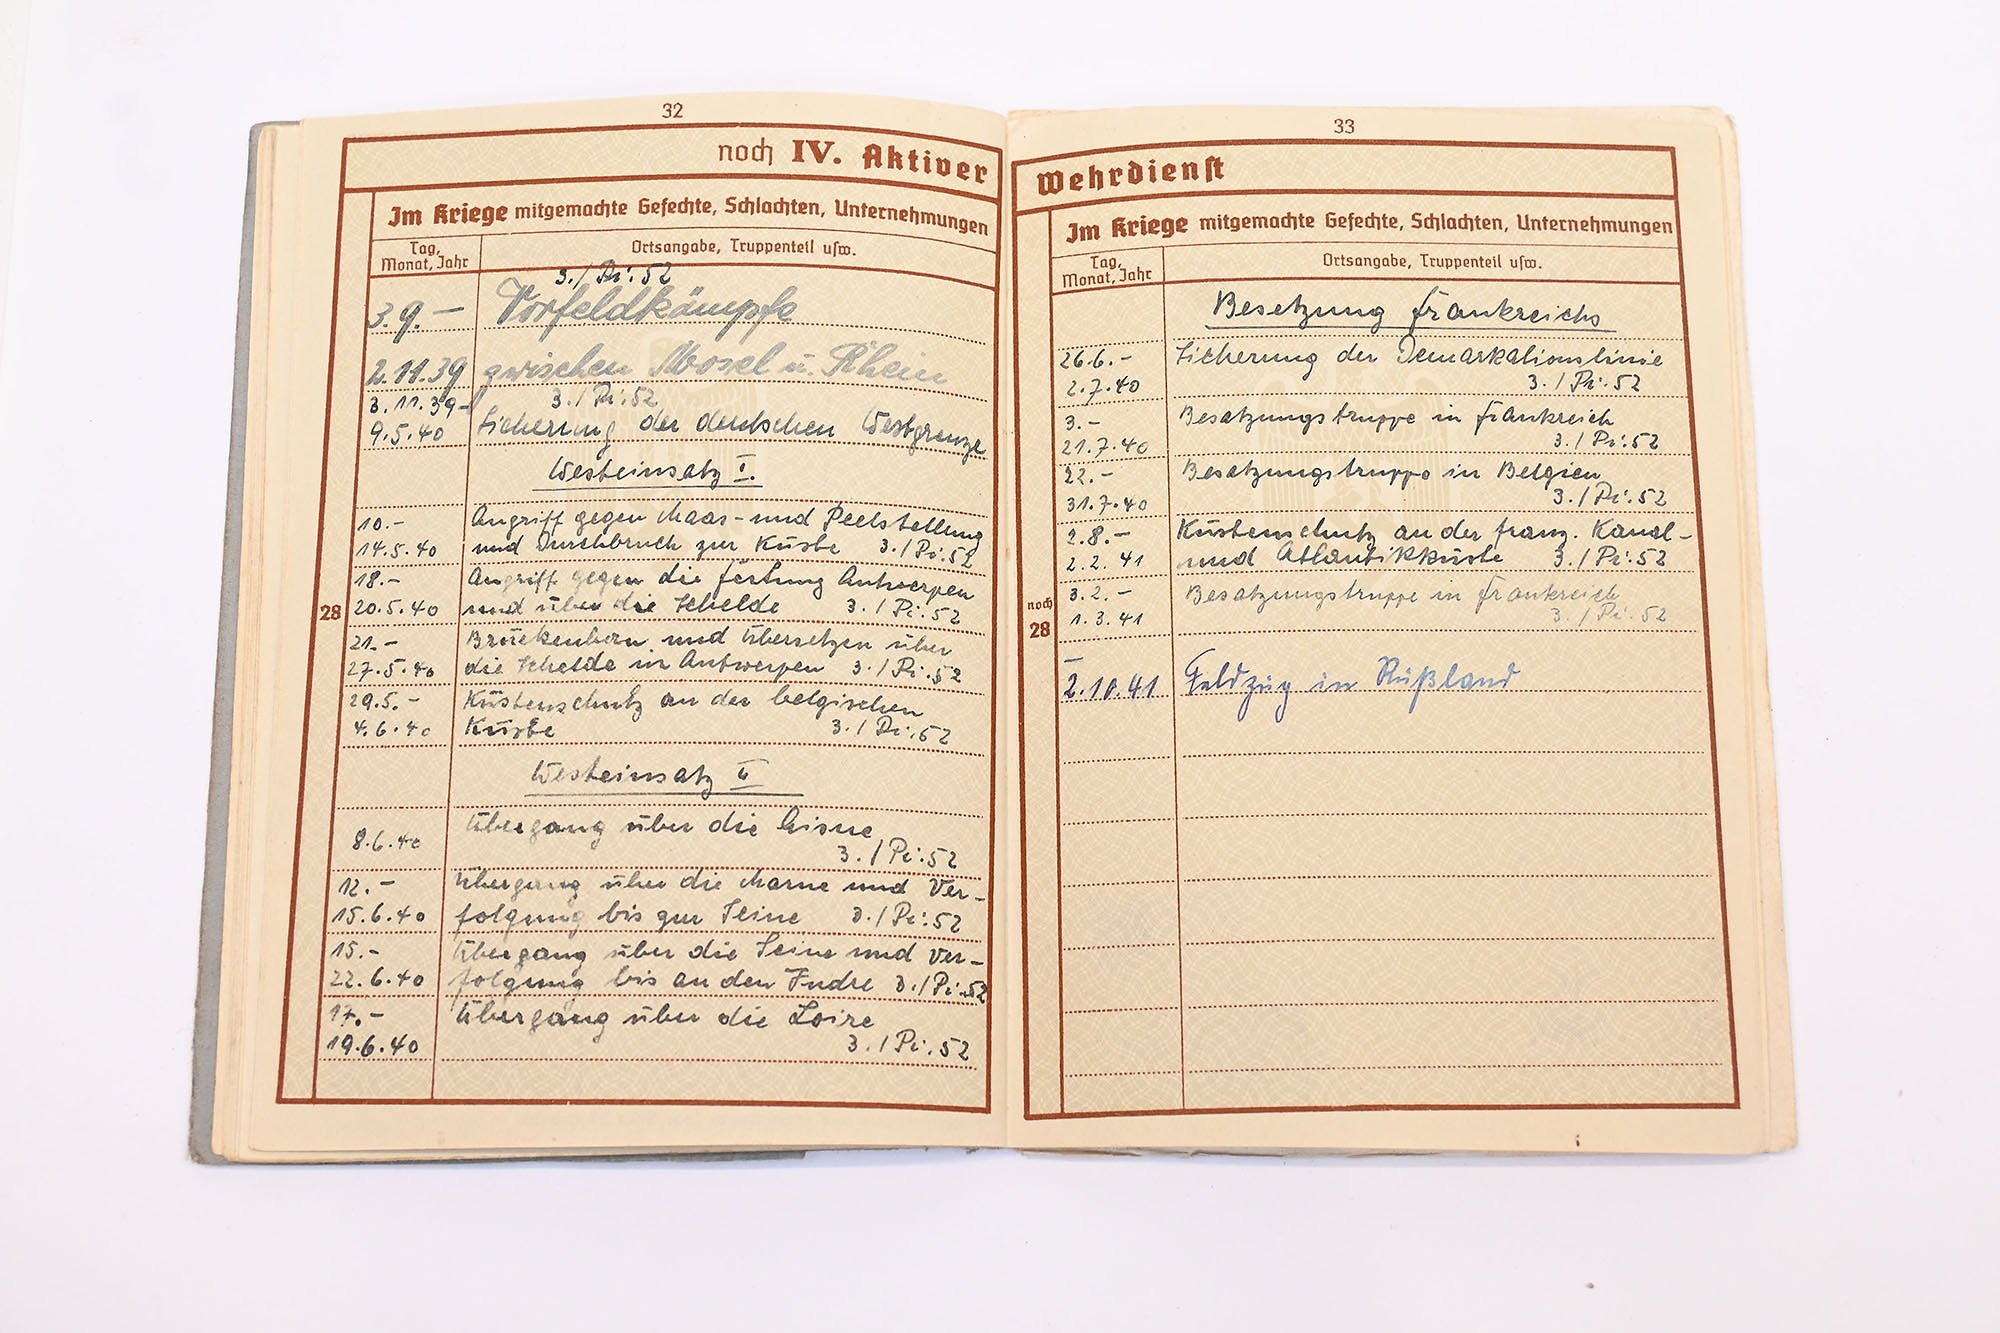 32
noch IV. Aktiver
Im Kriege mitgemachte Gefechte, Schlachten, Unternehmungen
Tag, Monat, Jahr
Ortsangabe, Truppenteil usw.
3./Pi: 52
3.9. – Vorfeldkämpfe
2.11.39 zwischen Mosel u. Rhein
3.11.39 – 3./Pi: 52
9.5.40 Sicherung der deutschen Westgrenze
Westeinsatz I.
10.– Angriff gegen Maas- und Peelstellung
14.5.40 und Durchbruch zur Küste 3./Pi: 52
18.– Angriff gegen die Festung Antwerpen
28
20.5.40 und über die Schelde 3./Pi: 52
21.– Brückenbau und Übersetzen über
27.5.40 die Schelde in Antwerpen 3./Pi: 52
29.5.– Küstenschutz an der belgischen
4.6.40 Küste 3./Pi: 52
Westeinsatz II
Übergang über die Aisne
8.6.40 3./Pi: 52
12.– Übergang über die Marne und Ver-
15.6.40 folgung bis zur Seine 3./Pi: 52
15.– Übergang über die Seine und Ver-
22.6.40 folgung bis an den Indre 3./Pi: 52
17.– Übergang über die Loire
19.6.40 3./Pi: 52
33
Wehrdienst
Im Kriege mitgemachte Gefechte, Schlachten, Unternehmungen
Tag, Monat, Jahr
Ortsangabe, Truppenteil usw.
Besetzung Frankreichs
26.6.– Sicherung der Demarkationslinie
2.7.40 3./Pi: 52
3.– Besatzungstruppe in Frankreich
21.7.40 3./Pi: 52
22.– Besatzungstruppe in Belgien
31.7.40 3./Pi: 52
2.8.– Küstenschutz an der franz. Kanal-
2.2.41 und Atlantikküste 3./Pi: 52
noch 28
3.2.– Besatzungstruppe in Frankreich
1.3.41 3./Pi: 52
–
2.10.41 Feldzug in Rußland